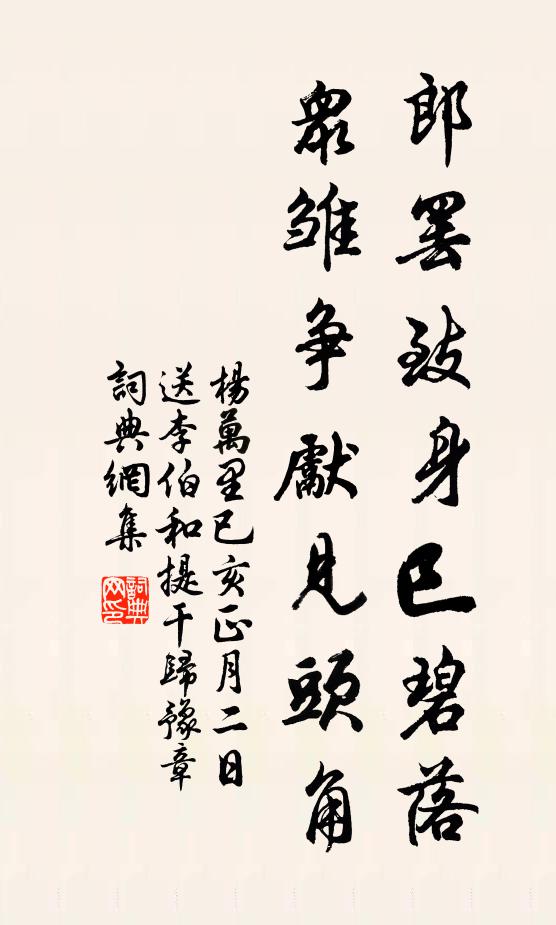 郎罷致身已碧落
衆雛争獻見頭角
楊萬里已亥正月二日
送李伯和提干歸豫章
詞典網集
詞典網印